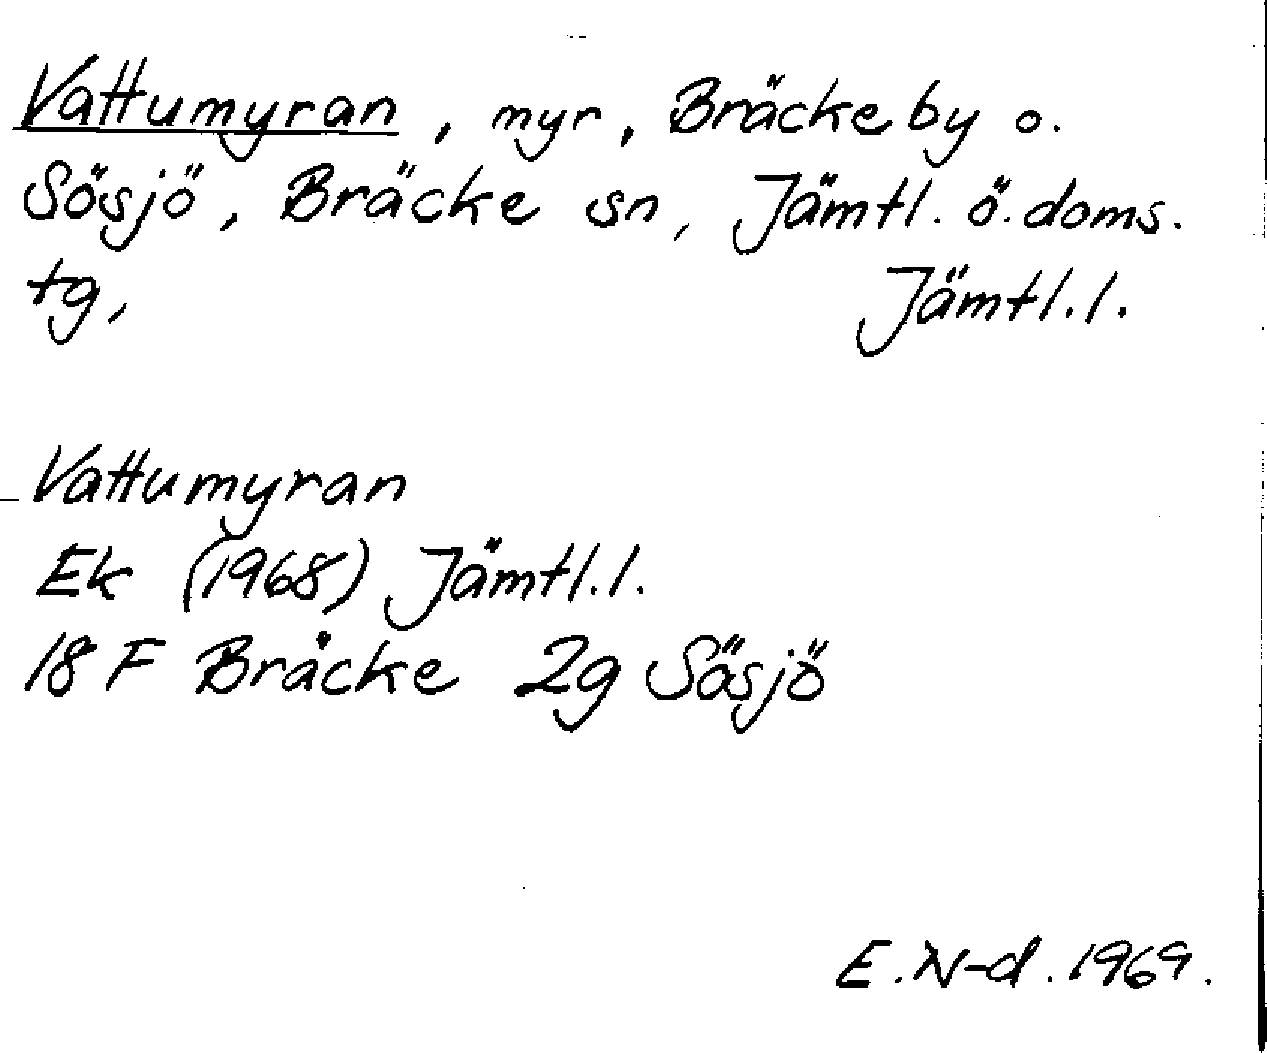 Vattumyran, myr, Bräckeby o.
Sösjö, Bräcke sn, Jämtl. ö. doms.
tg, Jämtl.l.
Vattumyran
Ek (1968) Jämtl.l.
18 F Bräcke 2g Sösjö
E.N-d. 1969.